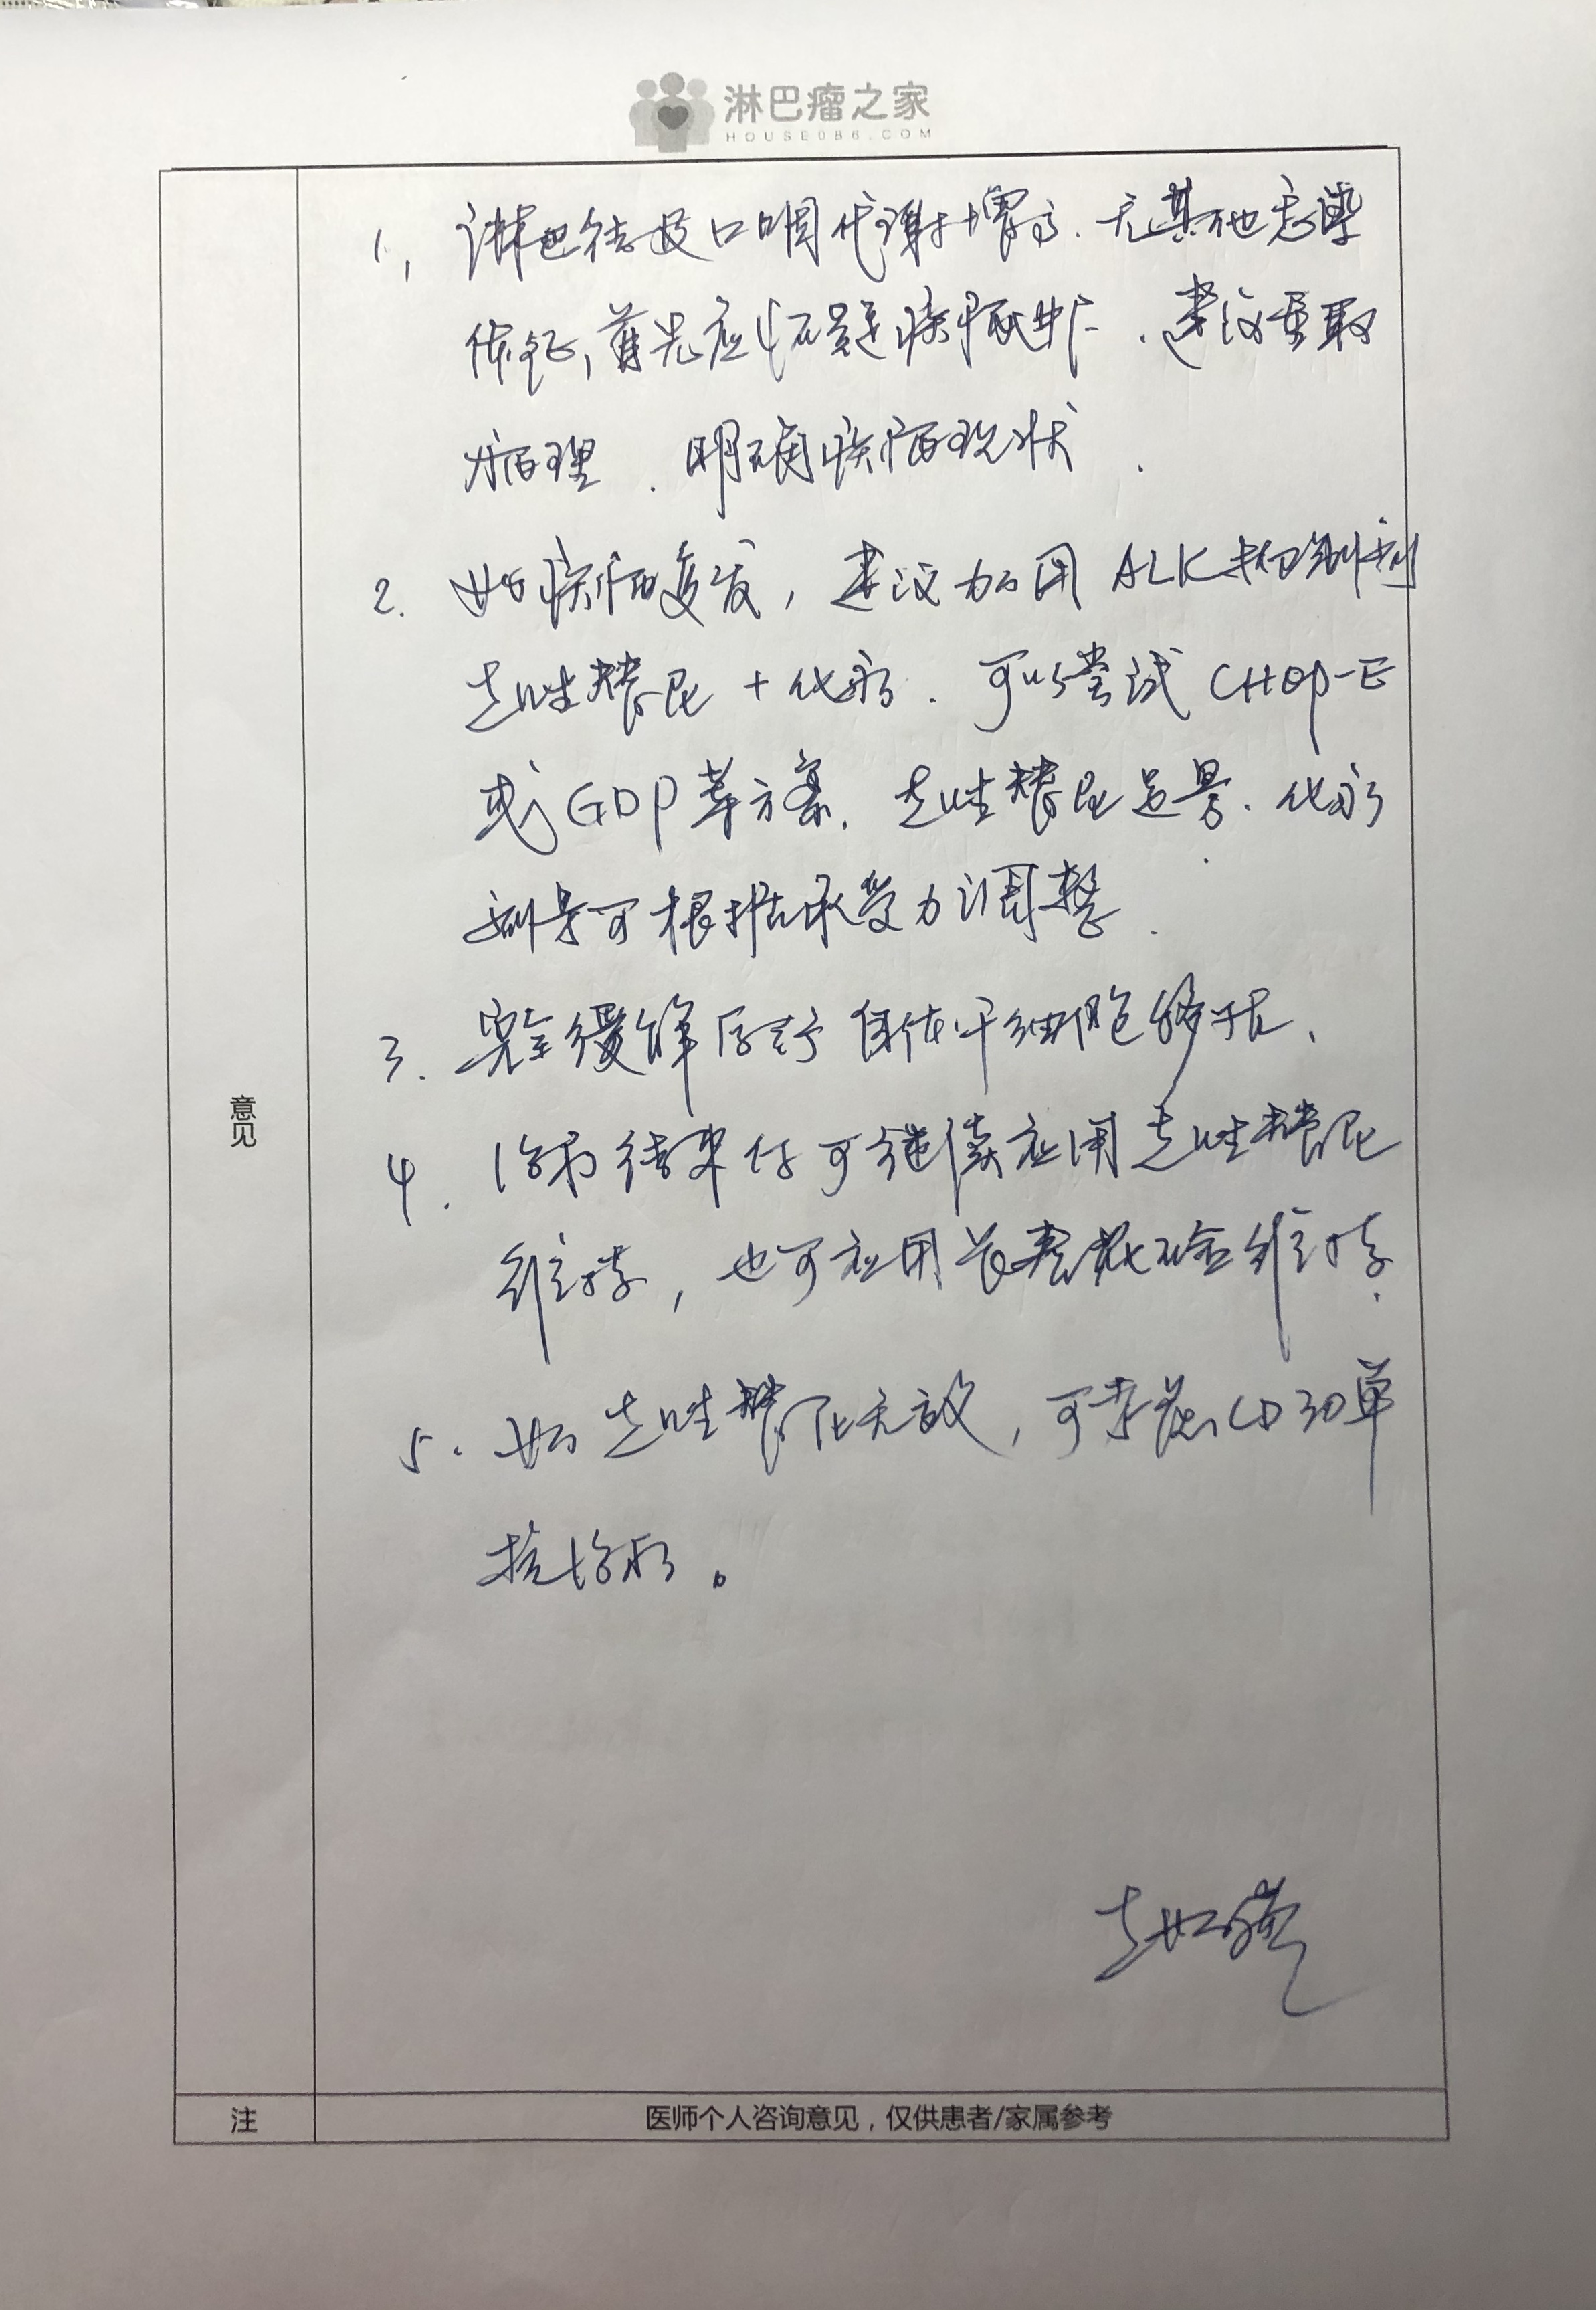 淋巴瘤之家
HOUSE086.COM
1. 淋巴结及口咽代谢增高.无其他感染
体征,首先应怀疑疾病进展.建议重取
病理.明确疾病现状.
2. 如疾病复发,建议加用ALK抑制剂
克唑替尼+化疗.可以尝试CHOP-E
或GDP等方案.克唑替尼足量.化疗
剂量可根据承受力调整.
3. 完全缓解后予自体干细胞移植、
4. 治疗结束仍可继续应用克唑替尼
维持,也可应用长春花碱维持.
5. 如克唑替尼无效,可考虑CD30单
抗治疗。
意见
注 医师个人咨询意见，仅供患者/家属参考